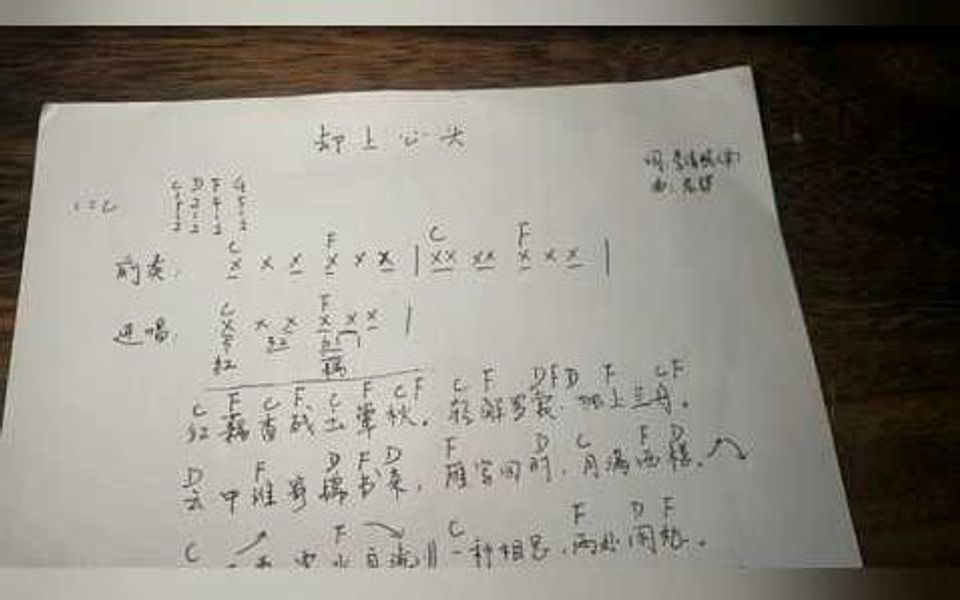 却上心头
词:李清照(宋)
曲:
1=C
C D F G
前奏:
C F C F
x x x x x x | xx xx x x x |
进唱:
C F
x x x x x x |
5 32
红 藕
C F C F C F C F C F D F D F C F
红藕香残玉簟秋。轻解罗裳,独上兰舟。
D F D F D F D C F D
云中谁寄锦书来,雁字回时,月满西楼。
C F C F D F
花自飘零水自流‖一种相思,两处闲愁。